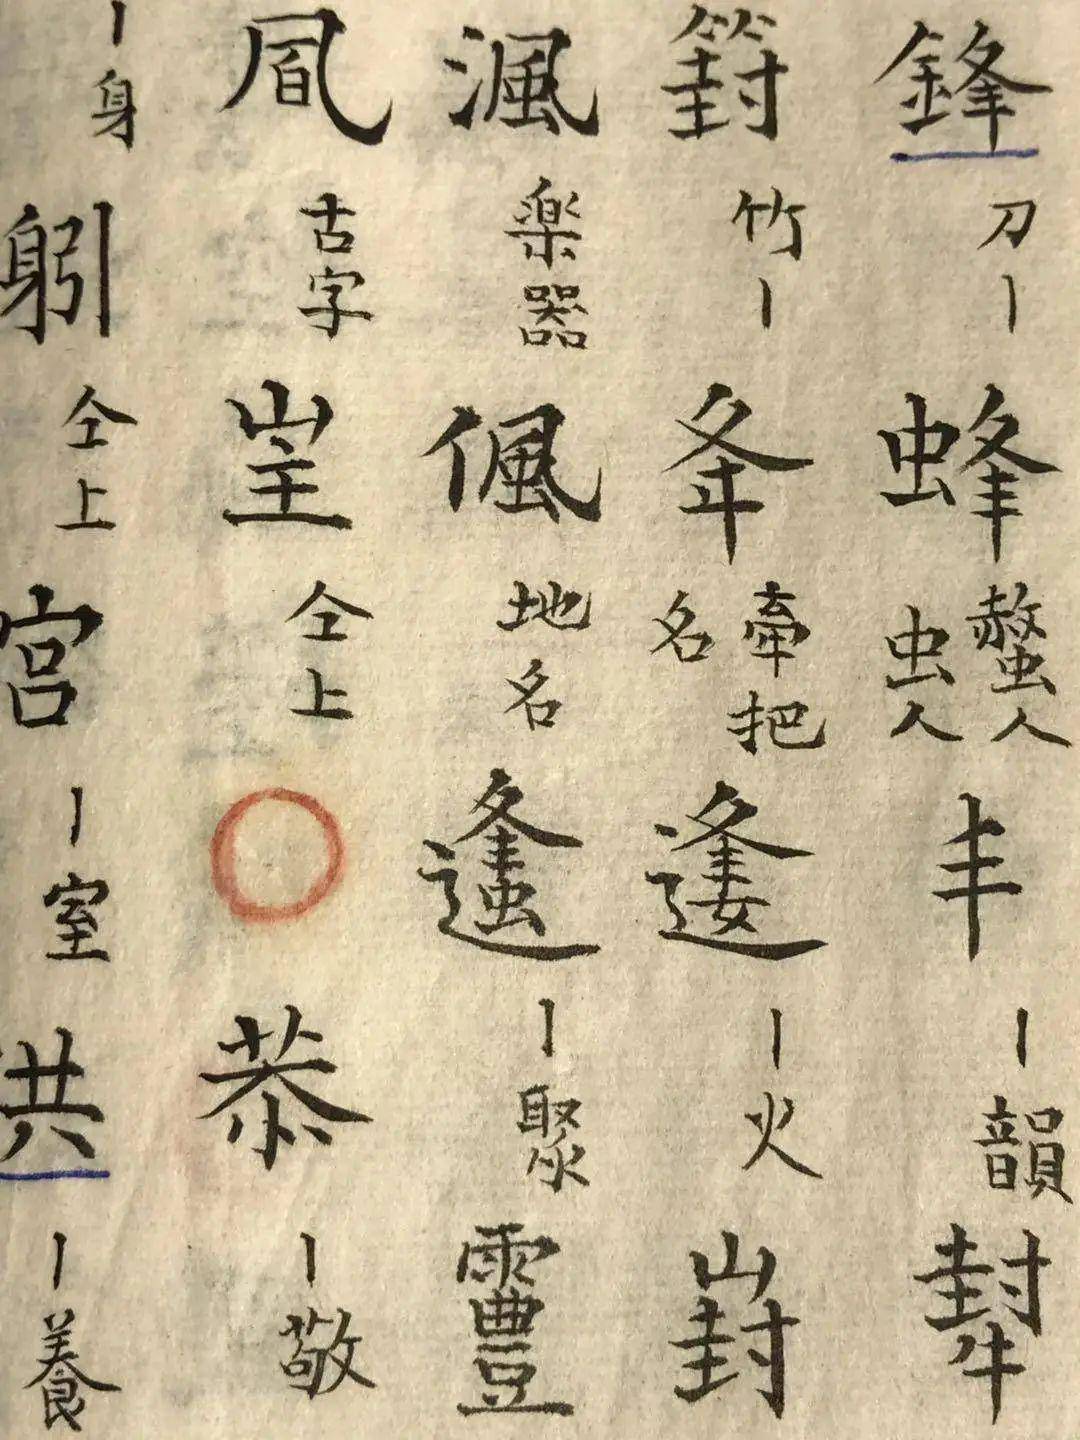 鋒 刀丨 蜂 螫人虫人 丰 丨韻 犎
篈 竹丨 夆 牽把名 丨火 崶
渢 楽器 偑 地名 䗬 丨聚 靊
凬 古字 仝上 ○ 恭 丨敬
丨身 仝上 宮 丨室 供 丨養